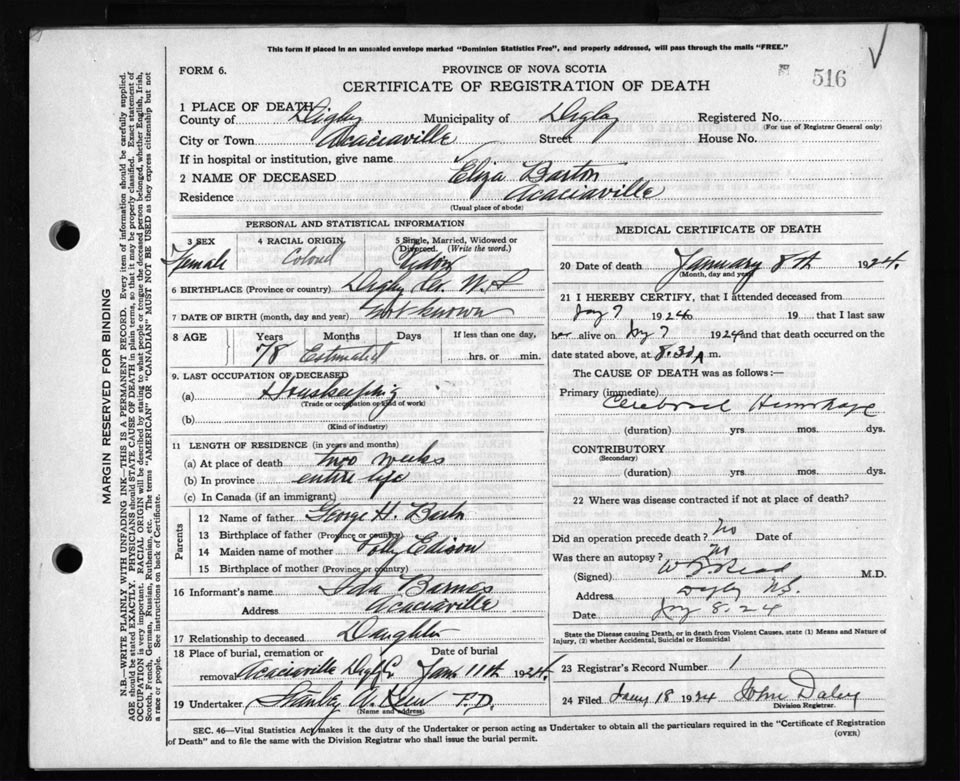 This form if placed in an unsealed envelope marked "Dominion Statistics Free", and properly addressed, will pass through the mails "FREE."
FORM 6.
PROVINCE OF NOVA SCOTIA
516
CERTIFICATE OF REGISTRATION OF DEATH
1 PLACE OF DEATH
County of Digby Municipality of Digby Registered No.
(For use of Registrar General only)
City or Town Acaciaville Street House No.
If in hospital or institution, give name
2 NAME OF DECEASED Eliza Barton
Residence Acaciaville
(Usual place of abode)
PERSONAL AND STATISTICAL INFORMATION
3 SEX 4 RACIAL ORIGIN 5 Single, Married, Widowed or Divorced. (Write the word.)
Female Colored Widow
6 BIRTHPLACE (Province or country) Digby Co. N.S
7 DATE OF BIRTH (month, day and year) Not known
8 AGE Years Months Days If less than one day,
78 Estimated hrs. or min.
9. LAST OCCUPATION OF DECEASED
(a) Housekeeping
(Trade or occupation or kind of work)
(b)
(Kind of industry)
11 LENGTH OF RESIDENCE (in years and months)
(a) At place of death two weeks
(b) In province entire life
(c) In Canada (if an immigrant)
Parents
12 Name of father George H. Barton
13 Birthplace of father (Province or country)
14 Maiden name of mother Polly Edison
15 Birthplace of mother (Province or country)
16 Informant's name Ida Barnes
Address Acaciaville
17 Relationship to deceased Daughter
18 Place of burial, cremation or removal Date of burial
Acaciaville Digby Co Jan. 11th 1924.
19 Undertaker Stanley A. F.D.
(Name and address)
MEDICAL CERTIFICATE OF DEATH
20 Date of death January 8th 1924.
(Month, day and year)
21 I HEREBY CERTIFY, that I attended deceased from
Jany 7 1924 19 that I last saw
her alive on Jany 7 1924 and that death occurred on the
date stated above, at 8.30 A m.
The CAUSE OF DEATH was as follows:—
Primary (immediate)
Cerebral Hemorhage
(duration) yrs. mos. dys.
CONTRIBUTORY
(Secondary)
(duration) yrs. mos. dys.
22 Where was disease contracted if not at place of death?
Did an operation precede death? No Date of
Was there an autopsy? No
(Signed) Read M.D.
Address Digby N.S.
Date Jany 8. 24
State the Disease causing Death, or in death from Violent Causes, state (1) Means and Nature of
Injury, (2) whether Accidental, Suicidal or Homicidal
23 Registrar's Record Number 1
24 Filed Jany 18 1924 John Daley
Division Registrar.
SEC. 46—Vital Statistics Act makes it the duty of the Undertaker or person acting as Undertaker to obtain all the particulars required in the "Certificate of Registration
of Death" and to file the same with the Division Registrar who shall issue the burial permit.
(OVER)
MARGIN RESERVED FOR BINDING
N.B.—WRITE PLAINLY WITH UNFADING INK—THIS IS A PERMANENT RECORD. Every item of information should be carefully supplied.
AGE should be stated EXACTLY. PHYSICIANS should STATE CAUSE OF DEATH in plain terms, so that it may be properly classified. Exact statement of
OCCUPATION is very important. RACIAL ORIGIN will be described by stating to what people or tongue the deceased person belonged, whether English, Irish,
Scotch, French, German, Russian, Ruthenian, etc. The terms "AMERICAN" OR "CANADIAN" MUST NOT BE USED as they express citizenship but not
a race or people. See instructions on back of Certificate.